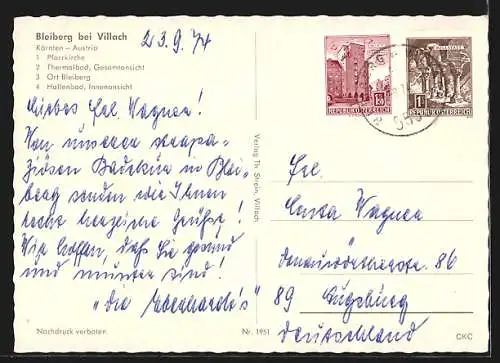 Bleiberg bei Villach
Kärnten – Austria
1 Pfarrkirche
2 Thermalbad, Gesamtansicht
3 Ort Bleiberg
4 Hallenbad, Innenansicht
23.9.74
Liebes Frl. Wagner!
Von unserer strapa-
ziösen Badekur in Blei-
berg senden wir Ihnen
recht herzliche Grüße!
Wir hoffen, daß Sie gesund
und munter sind!
"die Eberhardt's"
Nachdruck verboten.
Verlag Th. Strein, Villach.
Nr. 1951
REPUBLIK ÖSTERREICH
REPUBLIK ÖSTERREICH
Frl.
Wagner
Donauwörtherstr. 86
89 Augsburg
Deutschland
CKC